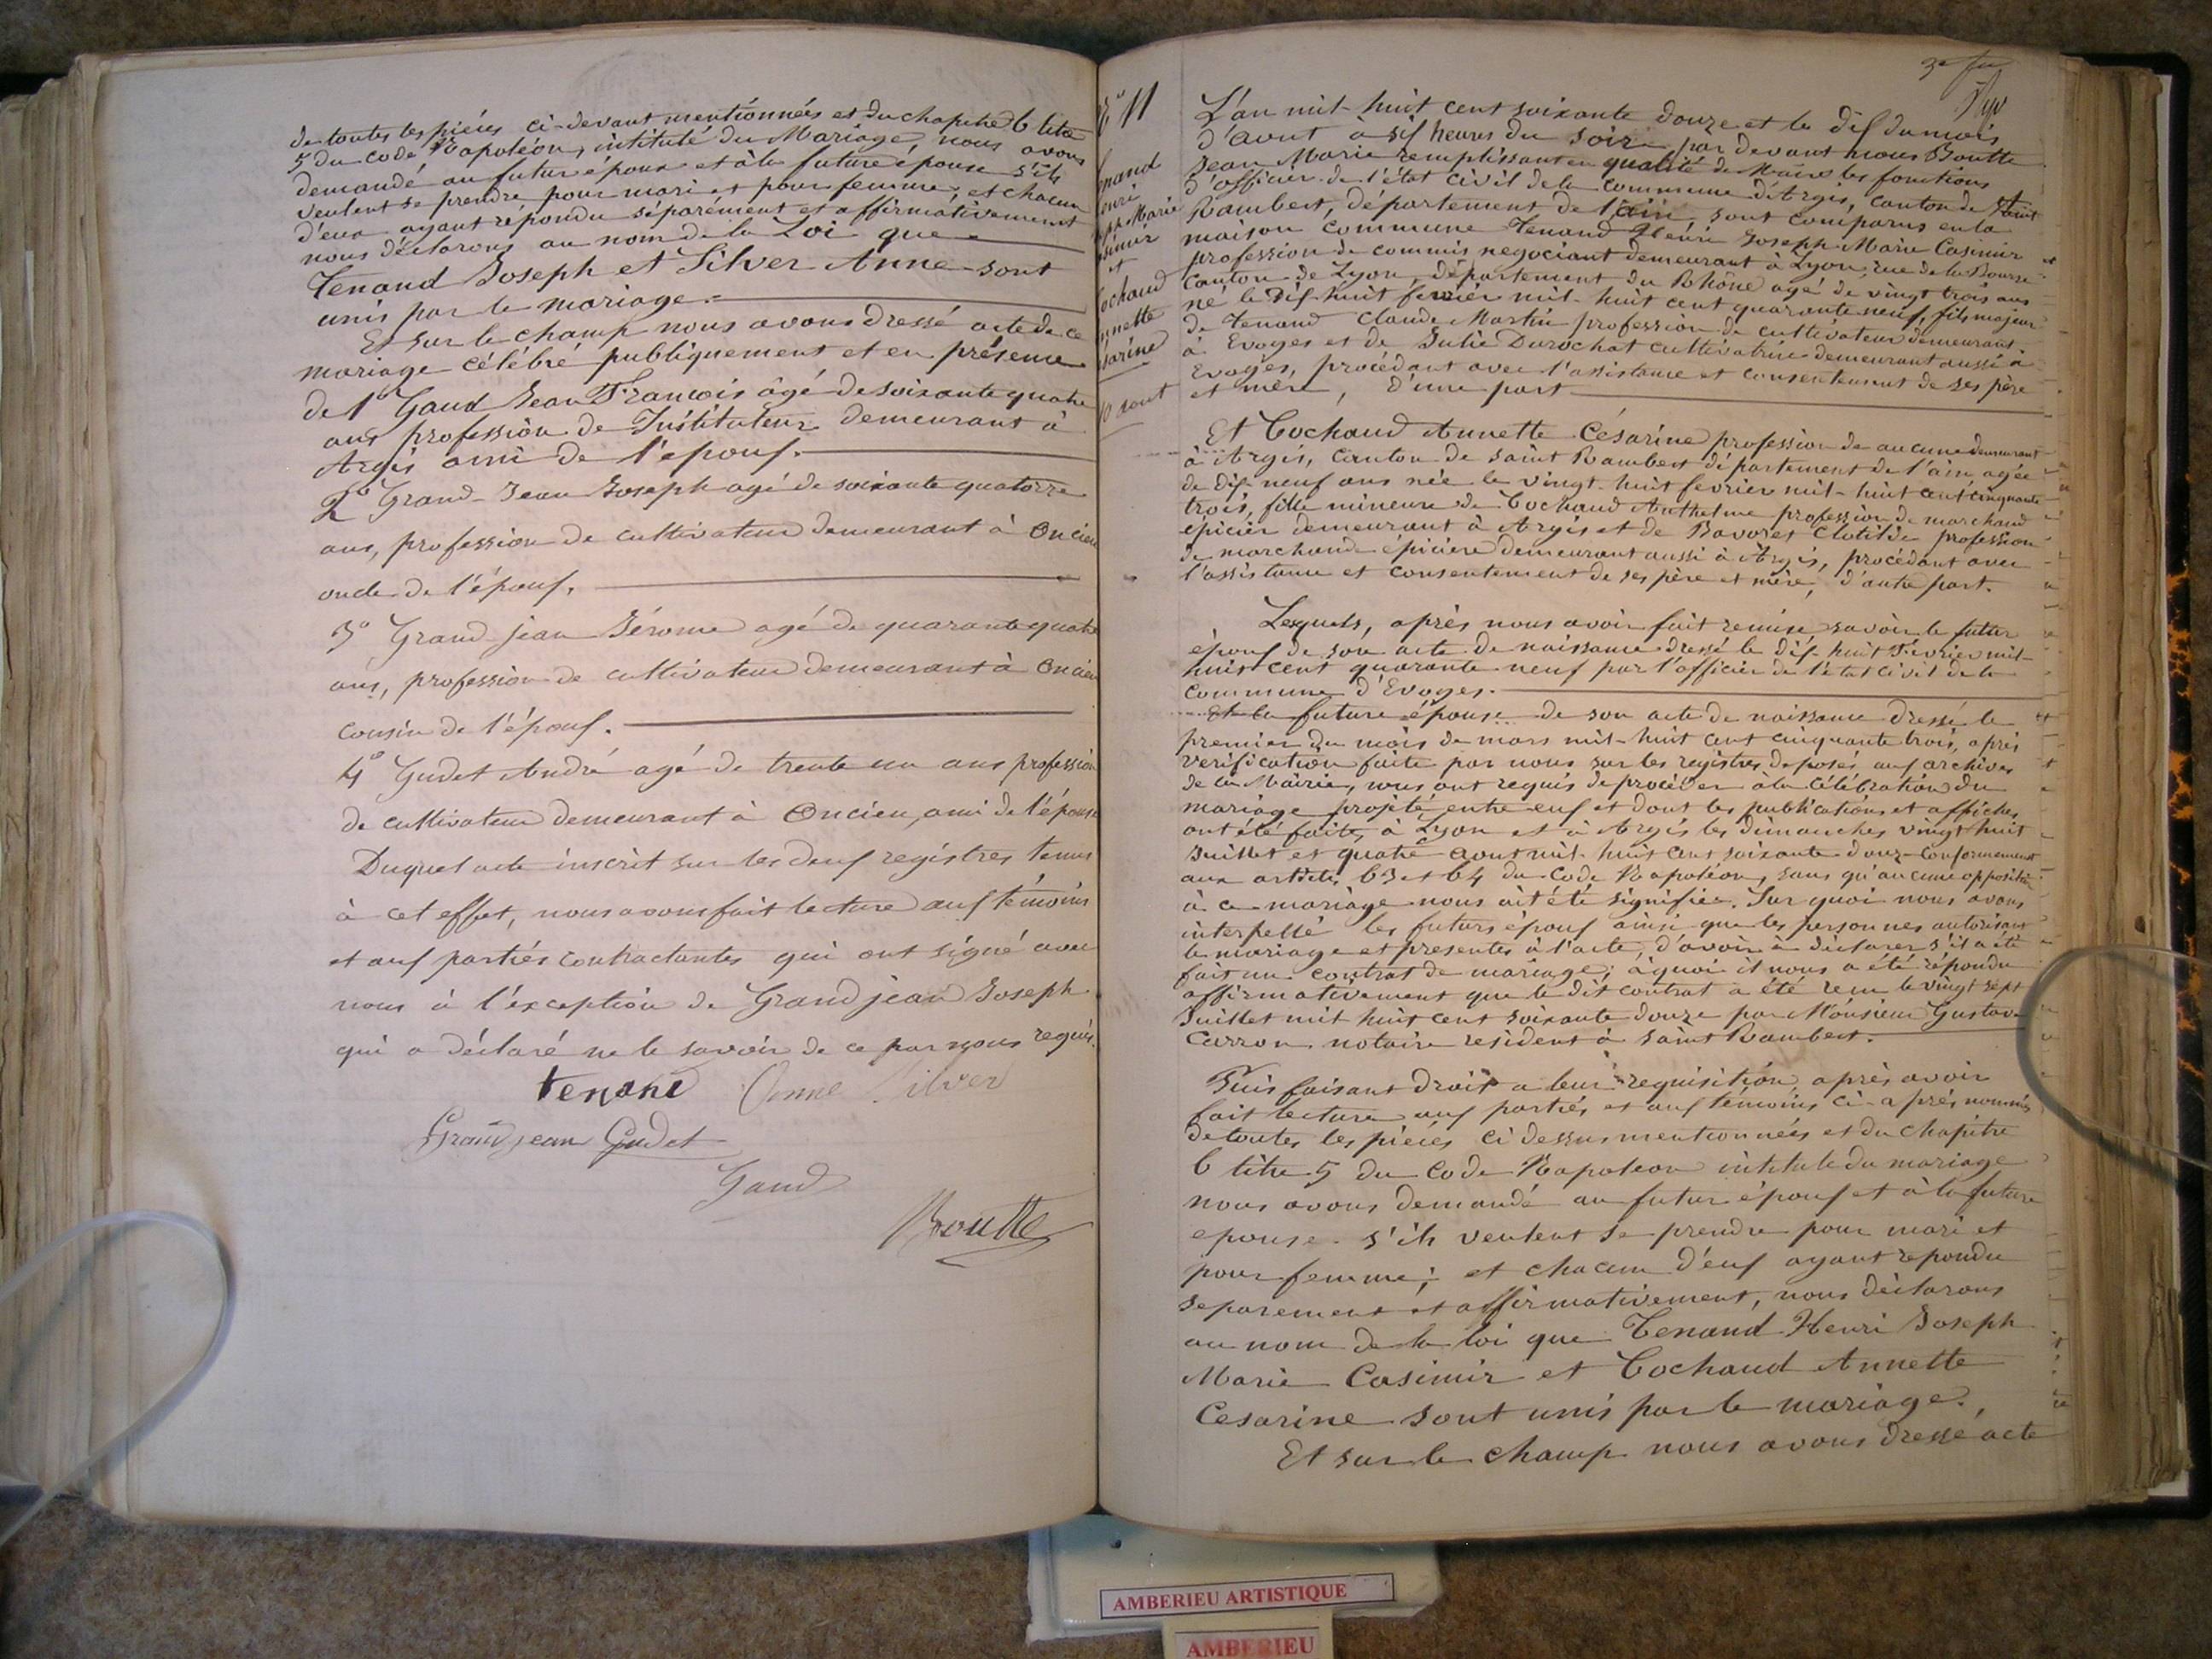 de toutes les pièces ci-devant mentionnées et du chapitre 6 titre
5 du code Napoléon, intitulé du Mariage, nous avons
demandé au futur époux et à la future épouse s'ils
veulent se prendre pour mari et pour femme, et chacun
d'eux ayant répondu séparément et affirmativement
nous déclarons au nom de la Loi que
Tenand Joseph et Silver Anne sont
unis par le mariage.
Et sur le champ nous avons dressé acte de ce
mariage célébré publiquement et en présence
de 1° Gaud Jean François âgé de soixante quatre
ans profession de Instituteur demeurant à
Argis ami de l'époux.
2° Grand-Jean Joseph agé de soixante quatorze
ans, profession de cultivateur demeurant à Oncieu
oncle de l'époux.
3° Grand jean Jérome agé de quarante quatre
ans, profession de cultivateur demeurant à Oncieu
cousin de l'époux.
4° Gudet André agé de trente un ans profession
de cultivateur demeurant à Oncieu, ami de l'épouse
Duquel acte inscrit sur les deux registres tenus
à cet effet, nous avons fait lecture aux témoins
et aux parties contractantes qui ont signé avec
nous à l'exception de Grand jean Joseph
qui a déclaré ne le savoir de ce par nous requis.
tenand Anne Silver
Grand jean Gudet
Gaud
Boutte
N° 11
enand
enri
Marie
simir
et
ochaud
nnette
sarine
10 aout
L'an mil-huit cent soixante douze et le dix du mois
d'aout à six heures du soir, par devant nous Boutte
Jean Marie remplissant en qualité de Maire les fonctions
d'officier de l'état civil de la commune d'Argis, canton de Saint
Rambert, département de l'ain, sont comparus en la
maison commune Tenand Henri Joseph Marie Casimir
profession de commis negociant demeurant à Lyon, rue de la Bourse
Canton de Lyon, département du Rhône agé de vingt trois ans
né le dix-huit fevrier mil-huit cent quarante neuf, fils majeur
de Tenand Claude Martin profession de cultivateur demeurant
à Evoges et de Julie Durochat cultivatrice demeurant aussi à
Evoges, procédant avec l'assistance et consentement de ses père
et mère, d'une part
Et Cochaud Annette Césarine profession de aucune demeurant
à Argis, canton de saint Rambert département de l'ain, agée
de dix-neuf ans née le vingt-huit fevrier mil-huit cent cinquante
trois, fille mineure de Cochaud Anthelme profession de marchand
epicier demeurant à Argis et de Ravoret Clotilde profession
de marchande épicière demeurant aussi à Argis, procédant avec
l'assistance et consentement de ses père et mère, d'autre part.
Lesquels, après nous avoir fait remise savoir le futur
époux de son acte de naissance dressé le dix-huit Février mil-
huit cent quarante neuf par l'officier de l'état civil de la
commune d'Evoges.
Et la future épouse de son acte de naissance dressé le
premier du mois de mars mil-huit cent cinquante trois, après
vérification faite par nous sur les registres deposés aux archives
de la Mairie, nous ont requis de procéder à la célébration du
mariage projeté entre eux et dont les publications et affiches
ont été faites à Lyon et à Argis les dimanches vingt huit
Juillet et quatre aout mil-huit cent soixante douze conformement
aux articles 63 et 64 du Code Napoléon, sans qu'aucune opposition
à ce mariage nous ait été signifiée. Sur quoi nous avons
interpellé les futurs époux ainsi que les personnes autorisant
le mariage et presentes à l'acte, d'avoir à déclarer s'il a été
fait un contrat de mariage; à quoi il nous a été répondu
affirmativement que le dit contrat a été reçu le vingt sept
Juillet mil huit cent soixante douze par Monsieur Gustave
Carron notaire resident à saint Rambert.
Puis faisant droit a leur requisition, après avoir
fait lecture aux parties et aux témoins ci-après nommés
de toutes les pièces ci dessus mentionnées et du chapitre
6 titre 5 du Code Napoleon intitulé du mariage
nous avons demandé au futur époux et à la future
epouse s'ils veulent se prendre pour mari et
pour femme; et chacun d'eux ayant repondu
separement et affirmativement, nous déclarons
au nom de la loi que Tenand Henri Joseph
Marie Casimir et Cochaud Annette
Cesarine sont unis par le mariage.
Et sur le champ nous avons dressé acte
AMBERIEU ARTISTIQUE
AMBERIEU